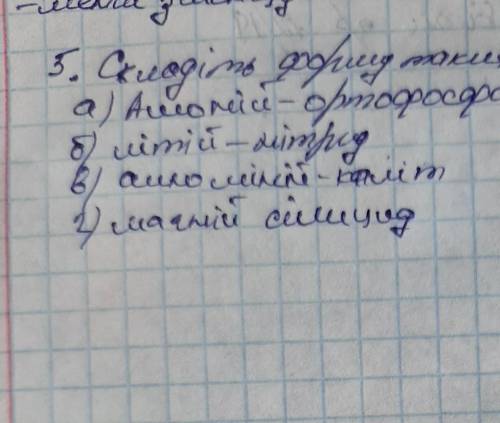 5. Складіть формул таки
а) Амоній - ортофосфа
б) літій - нітрид
в) алюміній -
г) магній силіцид